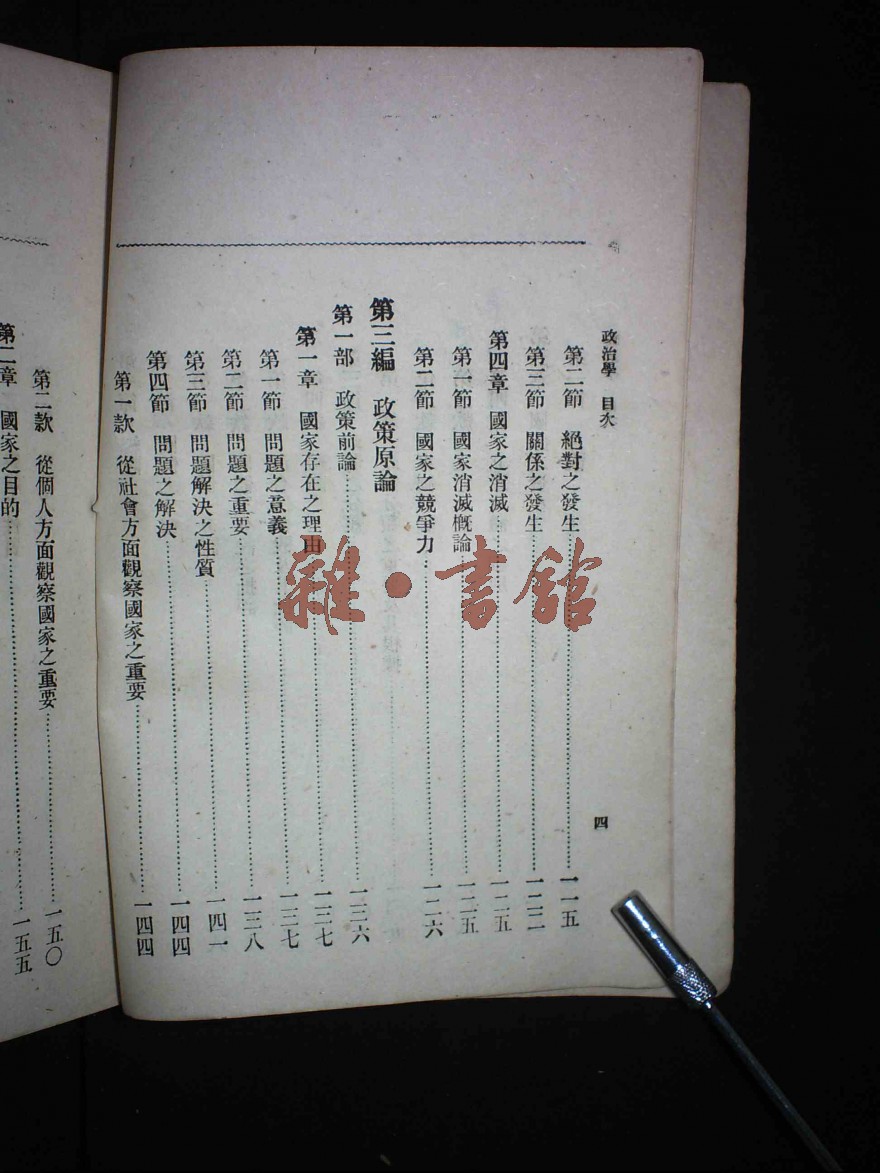 政治學 目次 四
第二節 絕對之發生……一一五
第三節 關係之發生……一二二
第四章 國家之消滅……一二五
第一節 國家消滅概論……一二五
第二節 國家之競爭力……一二六
第三編 政策原論
第一部 政策前論……一三六
第一章 國家存在之理由……一三七
第一節 問題之意義……一三七
第二節 問題之重要……一三八
第三節 問題解決之性質……一四一
第四節 問題之解決……一四四
第一款 從社會方面觀察國家之重要……一四四
第二款 從個人方面觀察國家之重要……一五〇
第二章 國家之目的……一五五
雜·書館